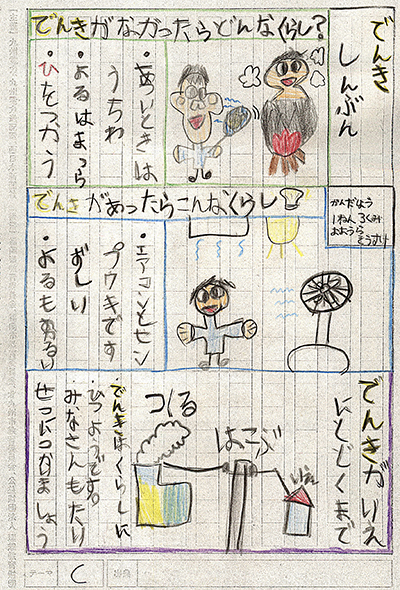 でんき
しんぶん
でんきがなかったらどんなくらし?
・あついときは
うちわ
・よるはまっくら
・ひをつかう
かんだしょう
1ねん3くみ
おおうら
そうすけ
でんきがあったらこんなくらし
・エアコンとセン
プウキです
ずしい
・よるもあかるい
でんきがいえ
にとどくまで
つくる
はこぶ
いえ
・でんきはくらしに
ひつようです。
・みなさんもたい
せつにつかいましょう
テーマ
C